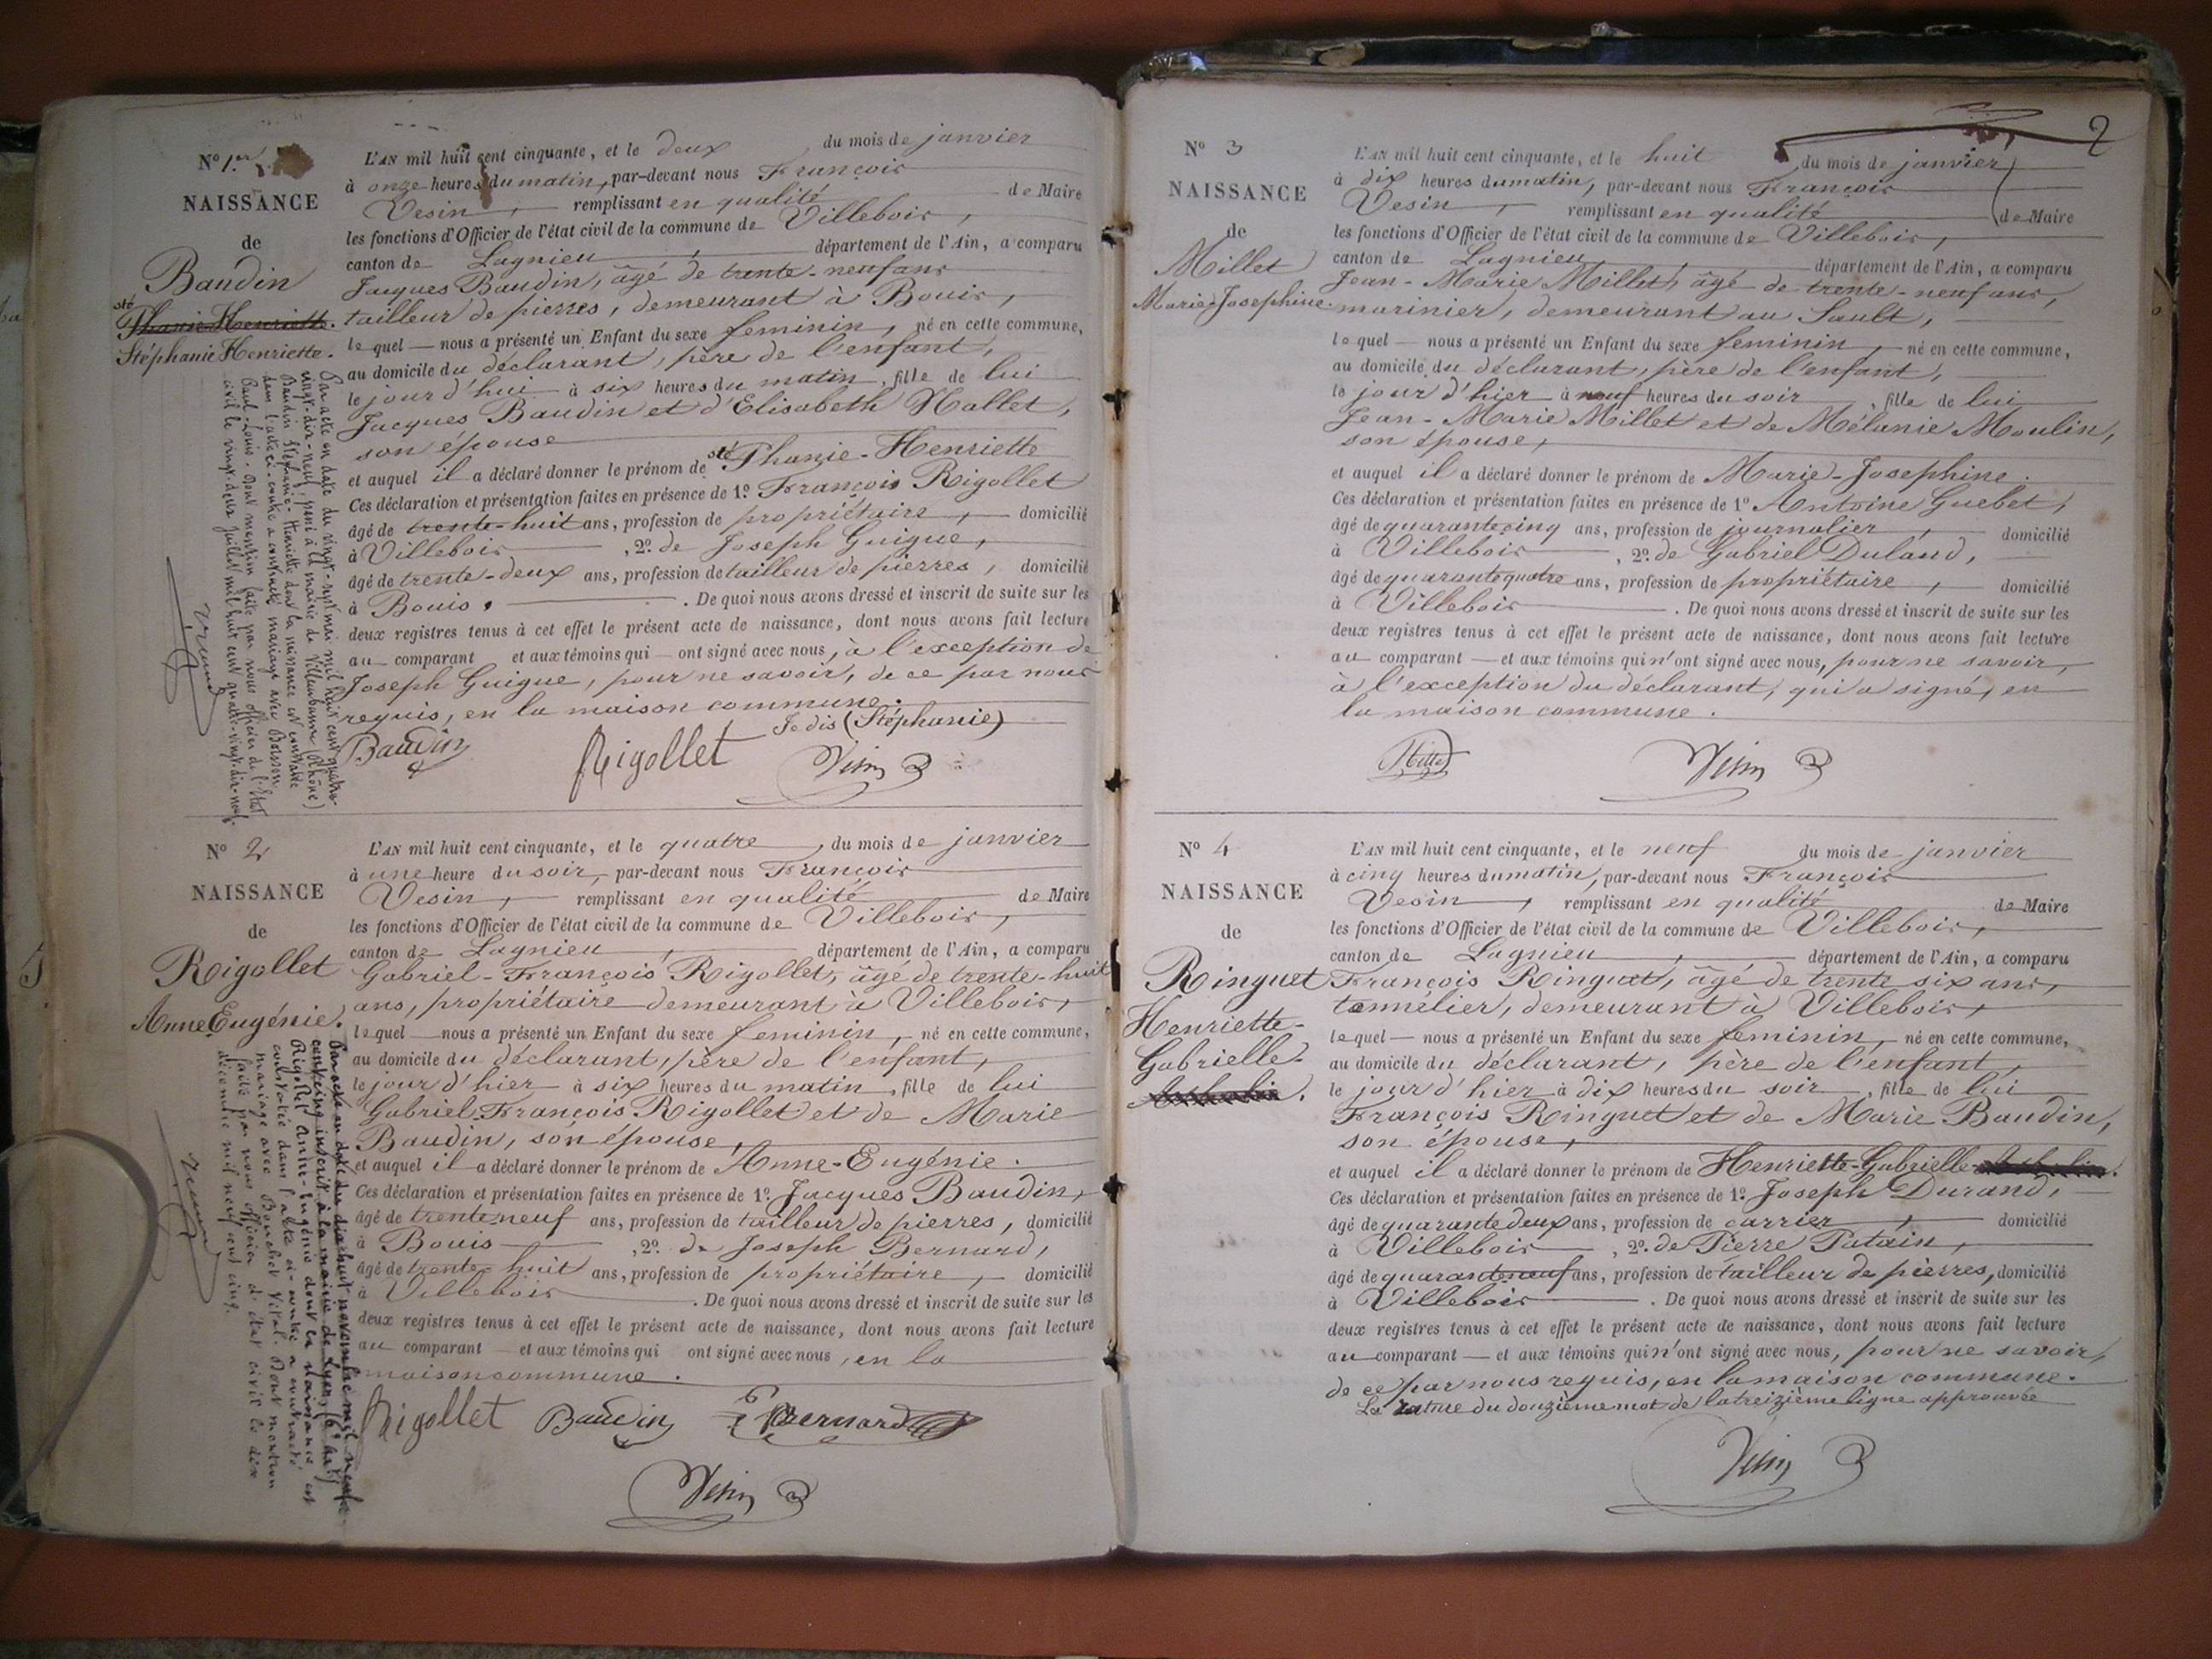 N° 1.er
NAISSANCE
de
Baudin
sté
Phanie-Henriette.
Stéphanie Henriette.
L'AN mil huit cent cinquante, et le deux du mois de janvier
à onze heures du matin, par-devant nous François
Vesin, remplissant en qualité de Maire
les fonctions d'Officier de l'état civil de la commune de Villebois,
canton de Lagnieu, département de l'Ain, a comparu
Jacques Baudin, âgé de trente-neuf ans
tailleur de pierres, demeurant à Bouis,
lequel nous a présenté un Enfant du sexe feminin, né en cette commune,
au domicile du déclarant, père de l'enfant,
le jour d'hui à six heures du matin, fille de lui
Jacques Baudin et d'Elisabeth Nallet,
son épouse
et auquel il a déclaré donner le prénom de sté Phanie-Henriette
Ces déclaration et présentation faites en présence de 1° François Rigollet
âgé de trente-huit ans, profession de propriétaire, domicilié
à Villebois, 2° de Joseph Guigue,
âgé de trente-deux ans, profession de tailleur de pierres, domicilié
à Bouis. De quoi nous avons dressé et inscrit de suite sur les
deux registres tenus à cet effet le présent acte de naissance, dont nous avons fait lecture
au comparant et aux témoins qui ont signé avec nous, à l'exception de
Joseph Guigue, pour ne savoir, de ce par nous
requis, en la maison commune.
Je dis (Stéphanie)
Baudin Rigollet Vesin
Par acte en date du vingt-sept mai mil huit cent quatre-
vingt-dix-neuf, passé à la mairie de Villeurbanne (Rhône)
Baudin Stéphanie-Henriette dont la naissance est constatée
dans l'acte ci-contre a contracté mariage avec Boisson
Paul-Louis. Dont mention faite par nous officier de l'état
civil le vingt-deux juillet mil huit cent quatre-vingt-dix-neuf.
N° 2
NAISSANCE
de
Rigollet
Anne Eugénie.
L'AN mil huit cent cinquante, et le quatre, du mois de janvier
à une heure du soir, par-devant nous François
Vesin, remplissant en qualité de Maire
les fonctions d'Officier de l'état civil de la commune de Villebois,
canton de Lagnieu, département de l'Ain, a comparu
Gabriel-François Rigollet, âgé de trente-huit
ans, propriétaire demeurant à Villebois,
lequel nous a présenté un Enfant du sexe feminin, né en cette commune,
au domicile du déclarant, père de l'enfant,
le jour d'hier à six heures du matin, fille de lui
Gabriel-François Rigollet et de Marie
Baudin, son épouse,
et auquel il a déclaré donner le prénom de Anne-Eugénie.
Ces déclaration et présentation faites en présence de 1° Jacques Baudin,
âgé de trente neuf ans, profession de tailleur de pierres, domicilié
à Bouis, 2° de Joseph Bernard,
âgé de trente-huit ans, profession de propriétaire, domicilié
à Villebois. De quoi nous avons dressé et inscrit de suite sur les
deux registres tenus à cet effet le présent acte de naissance, dont nous avons fait lecture
au comparant et aux témoins qui ont signé avec nous, en la
maison commune.
Rigollet Baudin Bernard
Vesin
Par acte en date du dix huit novembre mil neuf
cent cinq inscrit à la mairie de Lyon (6e art)
Rigollet Anne-Eugénie dont la naissance est
constatée dans l'acte ci-contre a contracté
mariage avec Bouchet Vital. Dont mention
faite par nous officier de l'état civil le dix
décembre mil neuf cent cinq.
2
N° 3
NAISSANCE
de
Millet
Marie-Josephine.
L'AN mil huit cent cinquante, et le huit du mois de janvier
à dix heures du matin, par-devant nous François
Vesin, remplissant en qualité de Maire
les fonctions d'Officier de l'état civil de la commune de Villebois,
canton de Lagnieu, département de l'Ain, a comparu
Jean-Marie Millet, âgé de trente-neuf ans,
marinier, demeurant au Sault,
lequel nous a présenté un Enfant du sexe feminin, né en cette commune,
au domicile du déclarant, père de l'enfant,
le jour d'hier à neuf heures du soir, fille de lui
Jean-Marie Millet et de Mélanie Moulin,
son épouse,
et auquel il a déclaré donner le prénom de Marie-Josephine.
Ces déclaration et présentation faites en présence de 1° Antoine Guebet,
âgé de quarante cinq ans, profession de journalier, domicilié
à Villebois, 2° de Gabriel Duland,
âgé de quarante quatre ans, profession de propriétaire, domicilié
à Villebois. De quoi nous avons dressé et inscrit de suite sur les
deux registres tenus à cet effet le présent acte de naissance, dont nous avons fait lecture
au comparant et aux témoins qui n'ont signé avec nous, pour ne savoir,
à l'exception du déclarant, qui a signé, en
la maison commune.
Millet Vesin
N° 4
NAISSANCE
de
Ringuet
Henriette-
Gabrielle
L'AN mil huit cent cinquante, et le neuf du mois de janvier
à cinq heures du matin, par-devant nous François
Vesin, remplissant en qualité de Maire
les fonctions d'Officier de l'état civil de la commune de Villebois,
canton de Lagnieu, département de l'Ain, a comparu
François Ringuet, âgé de trente six ans,
tonnélier, demeurant à Villebois,
lequel nous a présenté un Enfant du sexe feminin, né en cette commune,
au domicile du déclarant, père de l'enfant,
le jour d'hier à dix heures du soir, fille de lui
François Ringuet et de Marie Baudin,
son épouse,
et auquel il a déclaré donner le prénom de Henriette-Gabrielle
Ces déclaration et présentation faites en présence de 1° Joseph Durand,
âgé de quarante deux ans, profession de carrier, domicilié
à Villebois, 2° de Pierre Patain,
âgé de quarante neuf ans, profession de tailleur de pierres, domicilié
à Villebois. De quoi nous avons dressé et inscrit de suite sur les
deux registres tenus à cet effet le présent acte de naissance, dont nous avons fait lecture
au comparant et aux témoins qui n'ont signé avec nous, pour ne savoir,
de ce par nous requis, en la maison commune.
La rature du douzième mot de la treizième ligne approuvée
Vesin